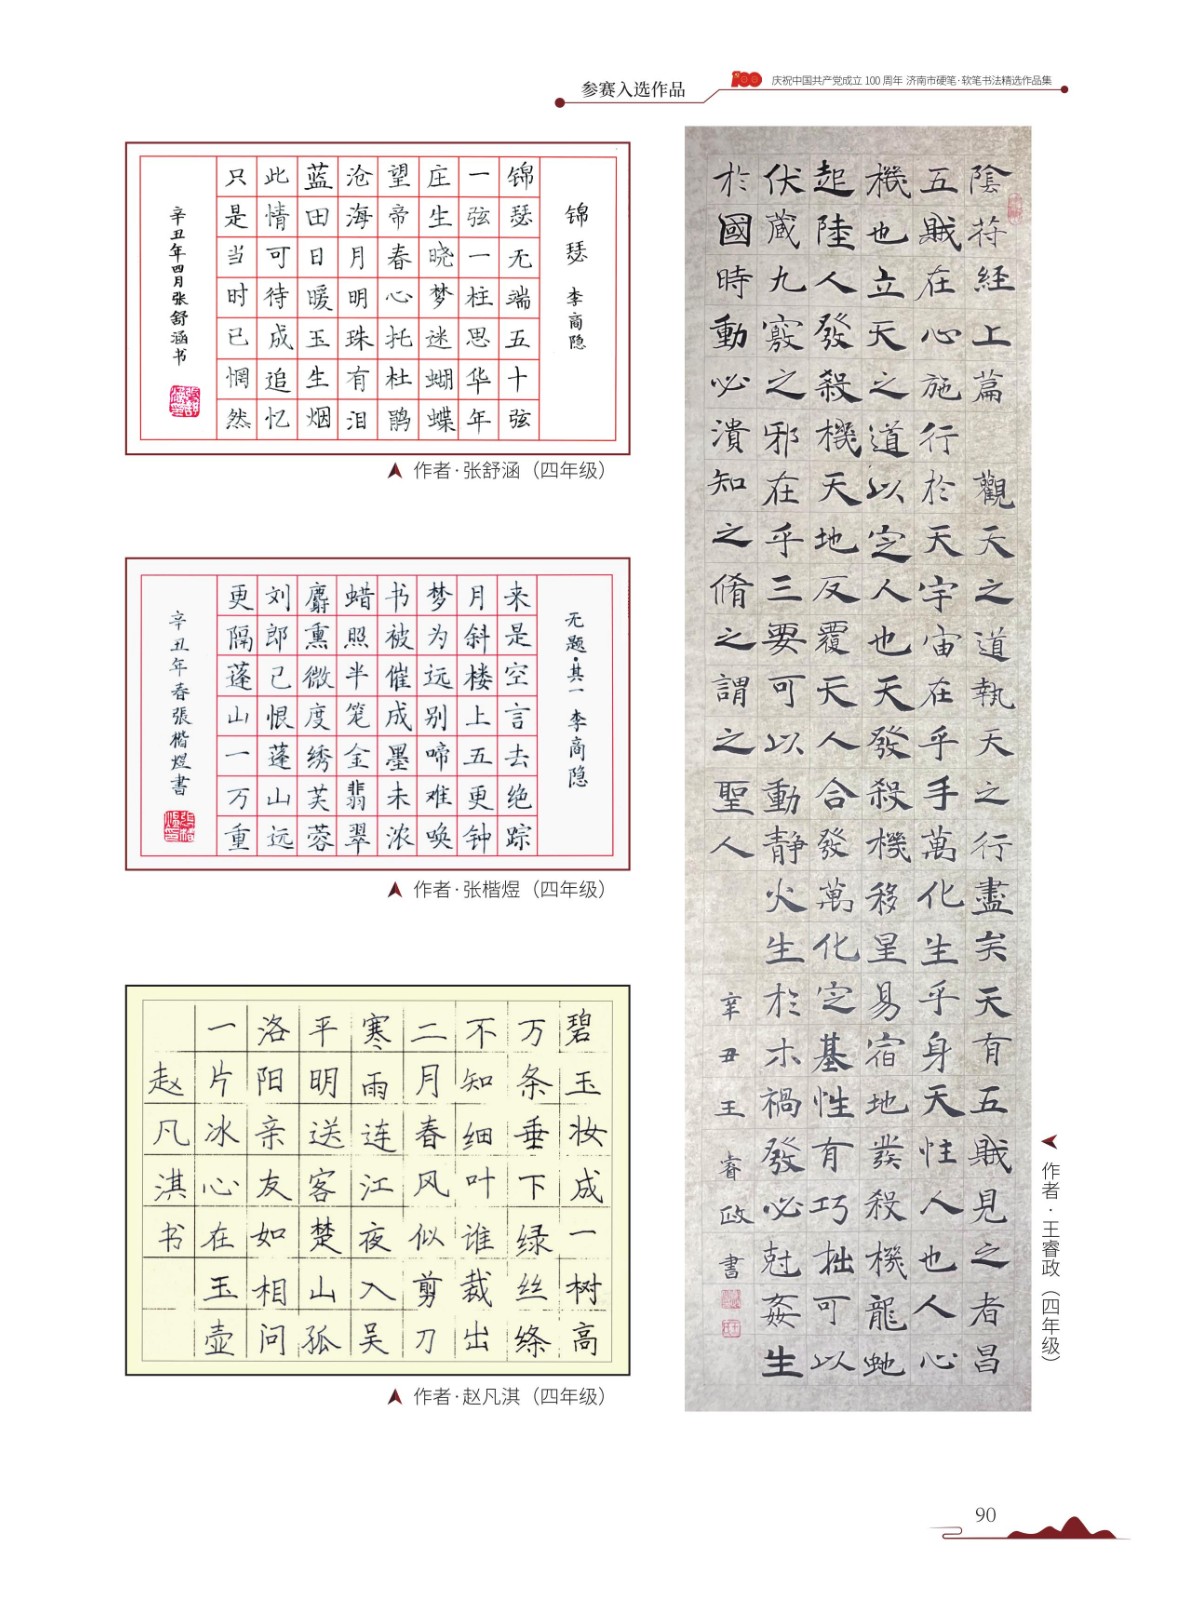 参赛入选作品
100 庆祝中国共产党成立 100 周年 济南市硬笔·软笔书法精选作品集
锦瑟 李商隐
锦瑟无端五十弦
一弦一柱思华年
庄生晓梦迷蝴蝶
望帝春心托杜鹃
沧海月明珠有泪
蓝田日暖玉生烟
此情可待成追忆
只是当时已惘然
辛丑年四月张舒涵书
作者·张舒涵（四年级）
无题·其一 李商隐
来是空言去绝踪
月斜楼上五更钟
梦为远别啼难唤
书被催成墨未浓
蜡照半笼金翡翠
麝熏微度绣芙蓉
刘郎已恨蓬山远
更隔蓬山一万重
辛丑年春張楷煜書
作者·张楷煜（四年级）
碧玉妆成一树高
万条垂下绿丝绦
不知细叶谁裁出
二月春风似剪刀
寒雨连江夜入吴
平明送客楚山孤
洛阳亲友如相问
一片冰心在玉壶
赵凡淇书
作者·赵凡淇（四年级）
陰符經上篇 觀天之道執天之行盡矣天有五賊見之者昌
五賊在心施行於天宇宙在乎手萬化生乎身天性人也人心
機也立天之道以定人也天發殺機移星易宿地發殺機龍虵
起陸人發殺機天地反覆天人合發萬化定基性有巧拙可以
伏藏九竅之邪在乎三要可以動靜火生於木禍發必尅姦生
於國時動必潰知之脩之謂之聖人
辛丑王睿政書
作者·王睿政（四年级）
90